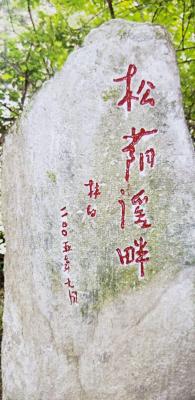 松荫溪畔
林白
二〇〇五年七月